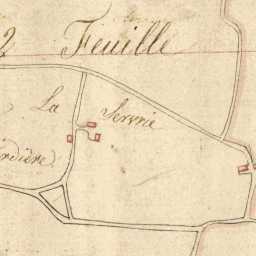 2 Feuille
La Servrie
rdière